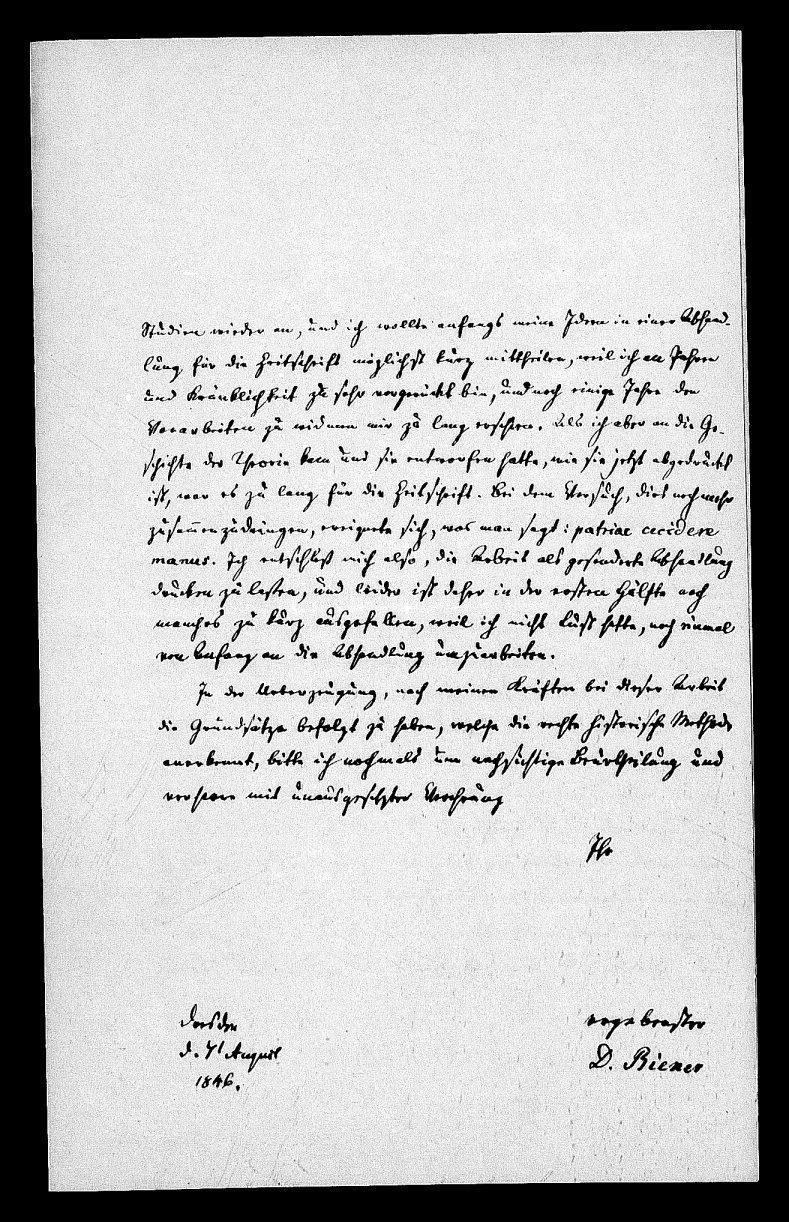 Studien wieder an, und ich wollte anfangs meine Ideen in einer Abhand-
lung für die Zeitschrift möglichst kurz mittheilen, weil ich an Jahren
und Kränklichkeit zu sehr vorgerückt bin, und noch einige Jahre den
Vorarbeiten zu widmen mir zu lang erschien. Als ich aber an die Ge-
schichte der Theorie kam und sie entworfen hatte, wie sie jetzt abgedruckt
ist, war es zu lang für die Zeitschrift. Bei dem Versuch, dies noch mehr
zusammenzudrängen, ereignete sich, was man sagt: patriae cecidere
manus. Ich entschloß mich also, die Arbeit als gesonderte Abhandlung
drucken zu lassen, und leider ist daher in der ersten Hälfte noch
manches zu kurz ausgefallen, weil ich nicht Lust hatte, noch einmal
von Anfang an die Abhandlung umzuarbeiten.
In der Ueberzeugung, nach meinen Kräften bei dieser Arbeit
die Grundsätze befolgt zu haben, welche die rechte historische Methode
anerkennt, bitte ich nochmals um nachsichtige Beurtheilung und
verharre mit unausgesetzter Verehrung
Ihr
Dresden
d. August
1846.
ergebenster
D. Biener